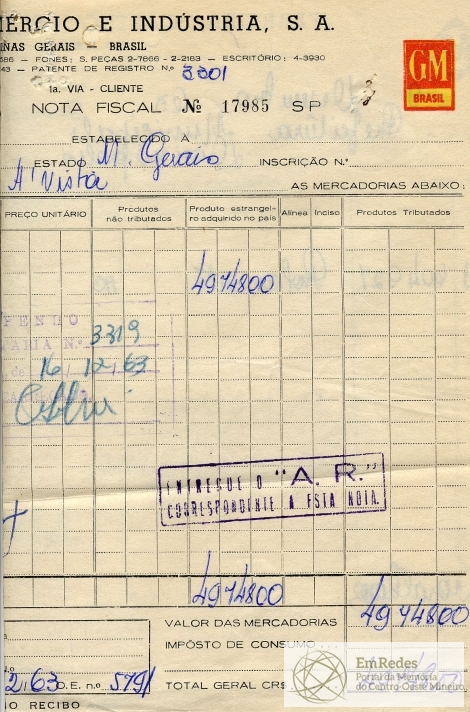 ÉRCIO E INDÚSTRIA, S. A.
NAS GERAIS — BRASIL
586 — FONES: S. PEÇAS 2-7866 - 2-2183 — ESCRITÓRIO: 4-3930
43 — PATENTE DE REGISTRO N.º 3301
1a. VIA - CLIENTE
GM
BRASIL
NOTA FISCAL Nº 17985 SP
ESTABELECIDO A
ESTADO M. Gerais INSCRIÇÃO N.º
A' Vista
AS MERCADORIAS ABAIXO:
PREÇO UNITÁRIO
Produtos não tributados
Produto estrangei-
ro adquirido no país
Alínea Inciso Produtos Tributados
4974800
PENHO
ARIA N.º 3319
de 16/12/63
ENTREGUE O "A. R."
CORRESPONDENTE A ESTA NOTA.
4974800
VALOR DAS MERCADORIAS 4974800
IMPÔSTO DE CONSUMO
2/63 O.E. n.º 579/
TOTAL GERAL CR$
IO RECIBO
EmRedes
Portal da Memória
do Centro-Oeste Mineiro